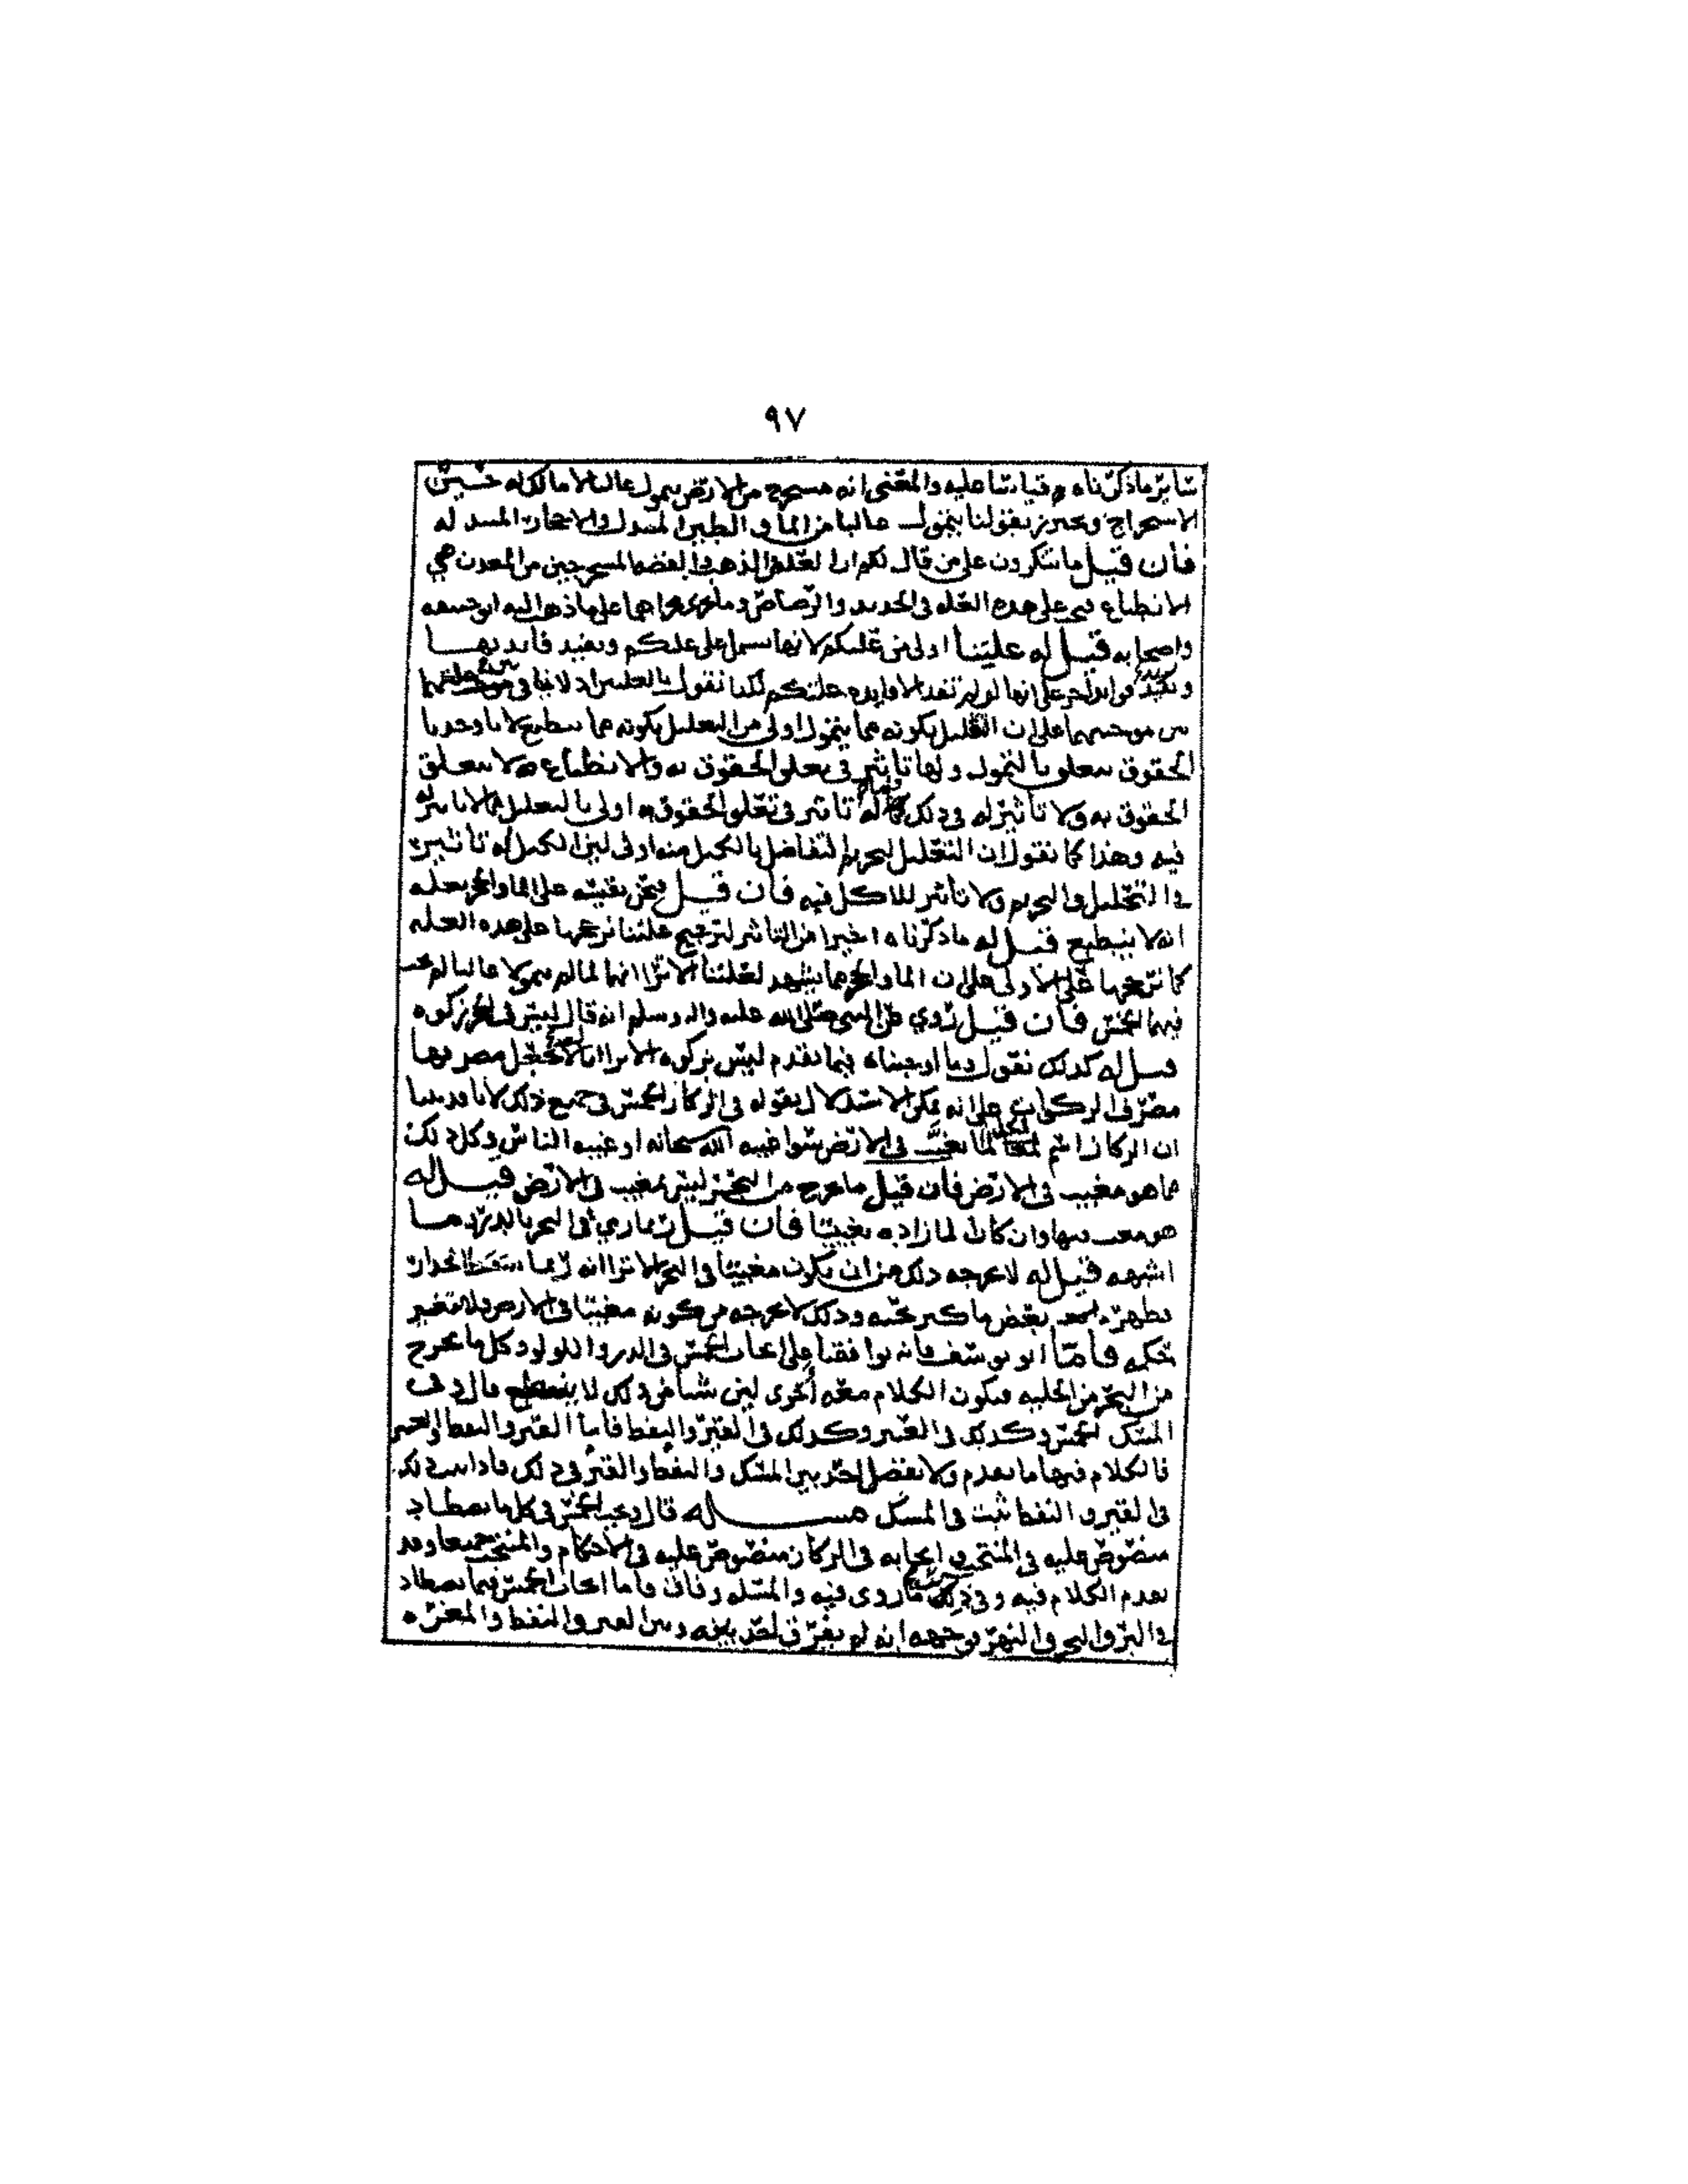 ٩٧
سائر ما ذكرناه قياسا عليه والمعنى انه مستخرج من الارض يتمول غالبا لا مالك له حين
الاستخراج ونحترز بقولنا يتمول غالبا من الماء والطين المبذول والاحجار المبذوله
فان قيل ما تنكرون على من قال لكم ان العله في الذهب والفضه المستخرجين من المعدن هي
الانطباع على هذه العله في الحديد والرصاص وما جرى مجراهما على ما ذهب اليه ابو حنيفه
واصحابه قيل له علتنا اولى من علتكم لانها تشتمل على علتكم وتفيد فايدتها
وتفيد فوايد اخر على انها لو لم تفد الا فايده علتكم لكنا نقول بالعلتين اذ لا تنافي
على ان التعليل بكونه مما يتمول اولى من التعليل بكونه مما ينطبع لانا وجدنا
الحقوق تتعلق بالتمول ولها تاثير في تعلق الحقوق به والانطباع لا تتعلق
الحقوق به ولا تاثير له في ذلك له تاثير في تعلق الحقوق به اولى بالتعليل مما لا تاثير له
فيه وهذا كما نقول ان التعليل لتحريم التفاضل بالكيل منه اولى لان الكيل له تاثير
في التحليل والتحريم ولا تاثير للاكل فيه فان قيل نحن نقيسه على الماء والحجر بعله
انه لا ينطبع قيل له ما ذكرناه اخيرا من التاثير لترجيح علتنا نرجحها على هذه العله
كما نرجحها على الاولى على ان الماء والحجر مما يشهد لعلتنا الا ترا انهما لما لم يتمولا غالبا لم يجب
فيهما الخمس فان قيل روي عن النبي صلى الله عليه واله وسلم انه قال ليس في الحجر زكوه
قيل له كذلك نقول وما اوجبناه فيما تقدم ليس بزكوه الا ترا انا لا نجعل مصرفها
مصرف الزكوات على انه يمكن الاستدلال بقوله في الركاز الخمس في جميع ذلك لانا قد بينا
ان الركاز اسم لما يغيب في الارض سوا غيبه الله سبحانه او غيبه الناس وكل ذلك
مما هو مغيب في الارض فان قيل ما يخرج من البحر ليس بمغيب في الارض قيل له
هو مغيب فيها وان كان الماء زاده تغيبا فان قيل ربما رمى البحر بالدر وما
اشبهه قيل له لا يخرجه ذلك من ان يكون مغيبا في البحر الا ترا انه ربما سقط الجدار
فظهر بعض ما كنز تحته وذلك لا يخرجه من كونه مغيبا في الارض ولا تغير
حكمه فاما ابو يوسف فانه يوافقنا على ايجاب الخمس في الدر واللولو وكل ما يخرج
من البحر من الحليه فيكون الكلام معه اجرى لان شيا من ذلك لا ينطبع قال وفي
المسك الخمس وكذلك في العنبر وكذلك في القير والنفط فاما القير والنفط والعنبر
فالكلام فيها ما تقدم ولا يفصل احد بين المسك والنفط والقير في ذلك فاذا ثبت ذلك
في القير والنفط ثبت في المسك مسـاله قال ويجب الخمس في كل ما يصطاد
منصوص عليه في المنتخب وايجابه في الركاز منصوص عليه في الاحكام والمنتخب جميعا وقد
تقدم الكلام فيه وفي ذلك ما روي فيه والمسله وفاق فاما ايجاب الخمس فيما يصطاد
في البر والبحر والنهر فوجهه انه لم يفرق احد بينه وبين العنبر والنفط والمغره